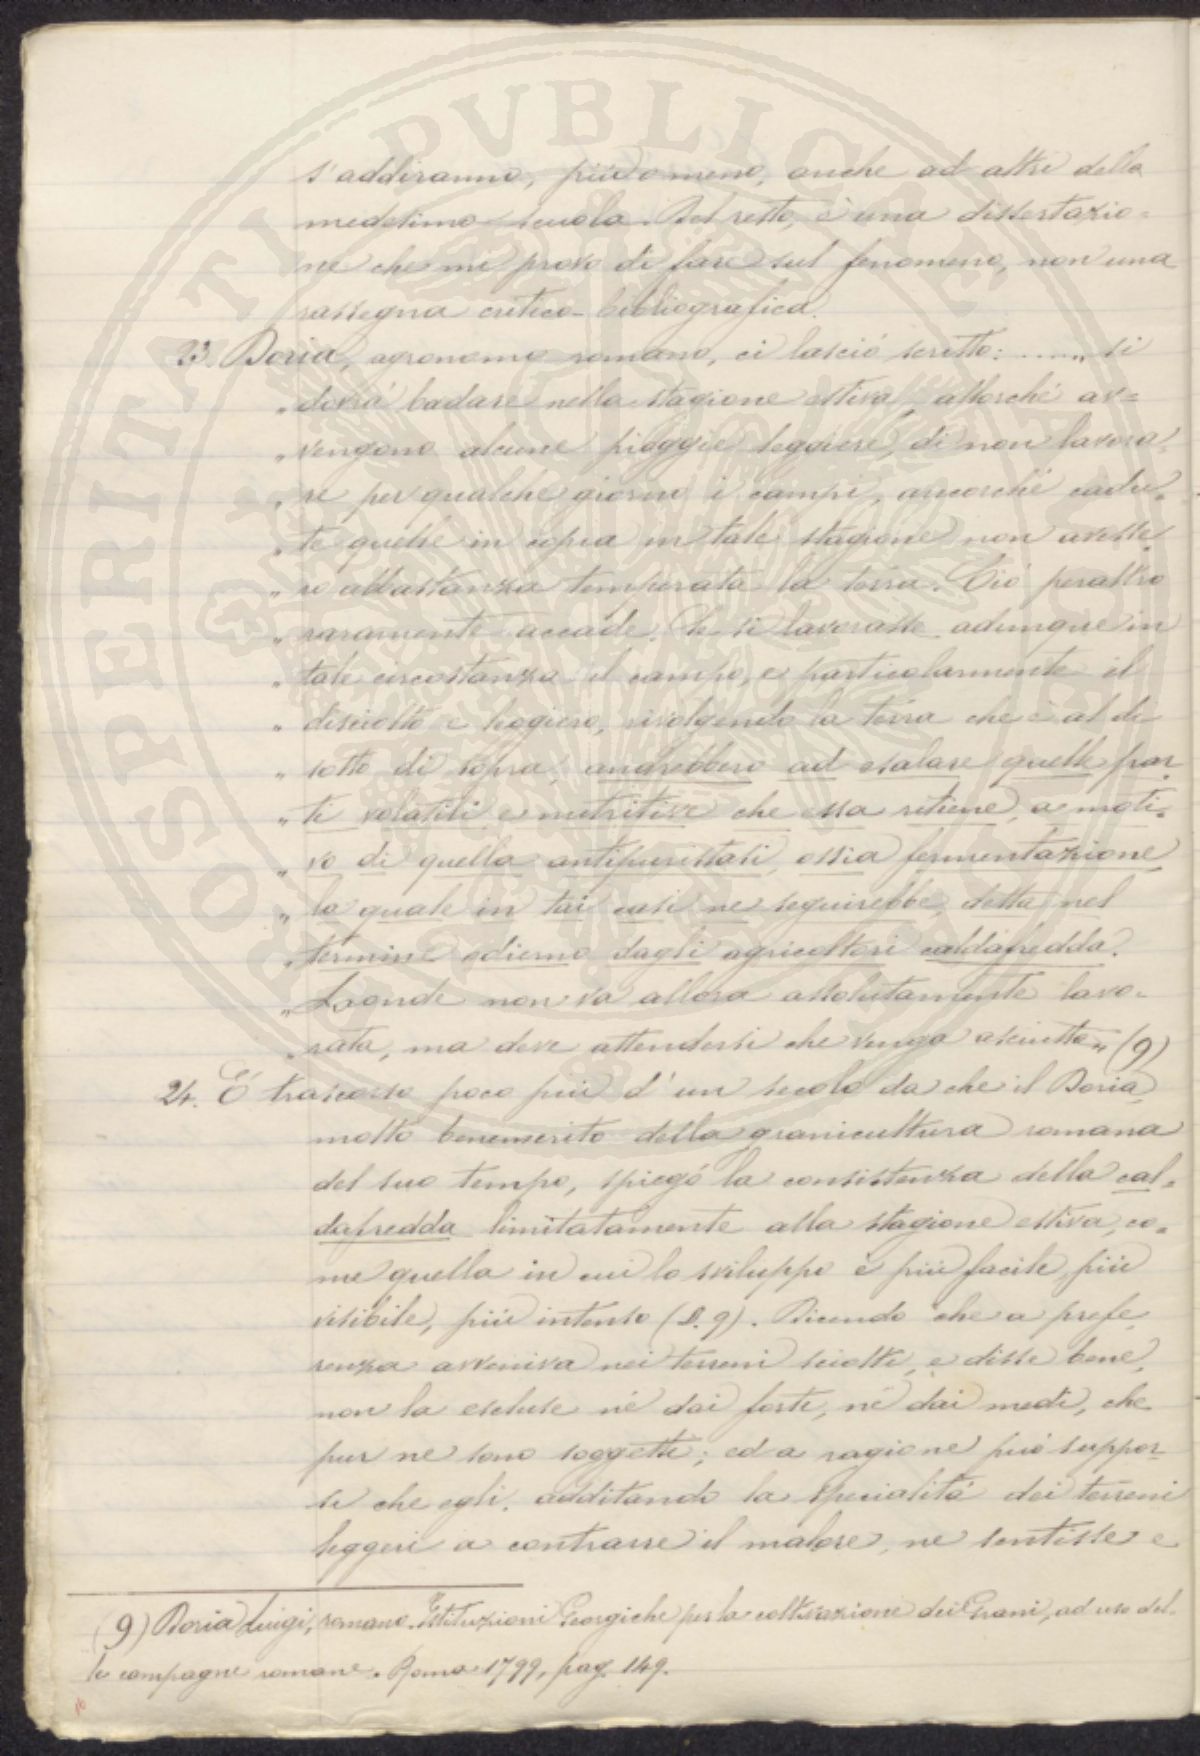 s'addiranno, più o meno, anche ad altri della
medesima scuola. Del resto, è una dissertazio=
ne che mi provo di fare sul fenomeno, non una
rassegna critico-bibliografica.
23. Doria, agronomo romano, ci lasciò scritto: ....„ si
„ dovrà badare nella stagione estiva, allorché av=
„ vengono alcune pioggie leggiere, di non lavora=
„ re per qualche giorno i campi, ancorché cadu=
„ te quelle in copia in tale stagione non avesse=
„ ro abbastanza temperata la terra. Ciò peraltro
„ raramente accade. Se si lavorasse adunque in
„ tale circostanza il campo, e particolarmente il
„ disciolto e leggiero, rivolgendo la terra che è al di
„ sotto di sopra, andrebbero ad esalare quelle par
„ ti volatili e nutritive che essa ritiene, a moti=
„ vo di quella antiperistasi, ossia fermentazione
„ la quale in tai casi ne seguirebbe, detta nel
„ termine odierno dagli agricoltori caldafredda.
„ Laonde non va allora assolutamente lavo=
„ rata, ma deve attendersi che venga asciutta„ (9)
24. È trascorso poco più d'un secolo da che il Doria
molto benemerito della granicultura romana
del suo tempo, spiegò la consistenza della cal=
dafredda limitatamente alla stagione estiva, co=
me quella in cui lo sviluppo è più facile, più
visibile, più intenso (D. 9). Dicendo che a prefe
renza avveniva nei terreni sciolti, e disse bene,
non la escluse né dai forti, né dai medi, che
pur ne sono soggetti; ed a ragione può suppor=
si che egli, additando la specialità dei terreni
leggeri a contrarre il malore, ne sentisse e
(9) Doria Luigi, romano. Istituzioni Georgiche per la coltivazione dei Grani, ad uso del=
le campagne romane. Roma 1799, pag. 149.
16
PROSPERITATI PVBLICAE